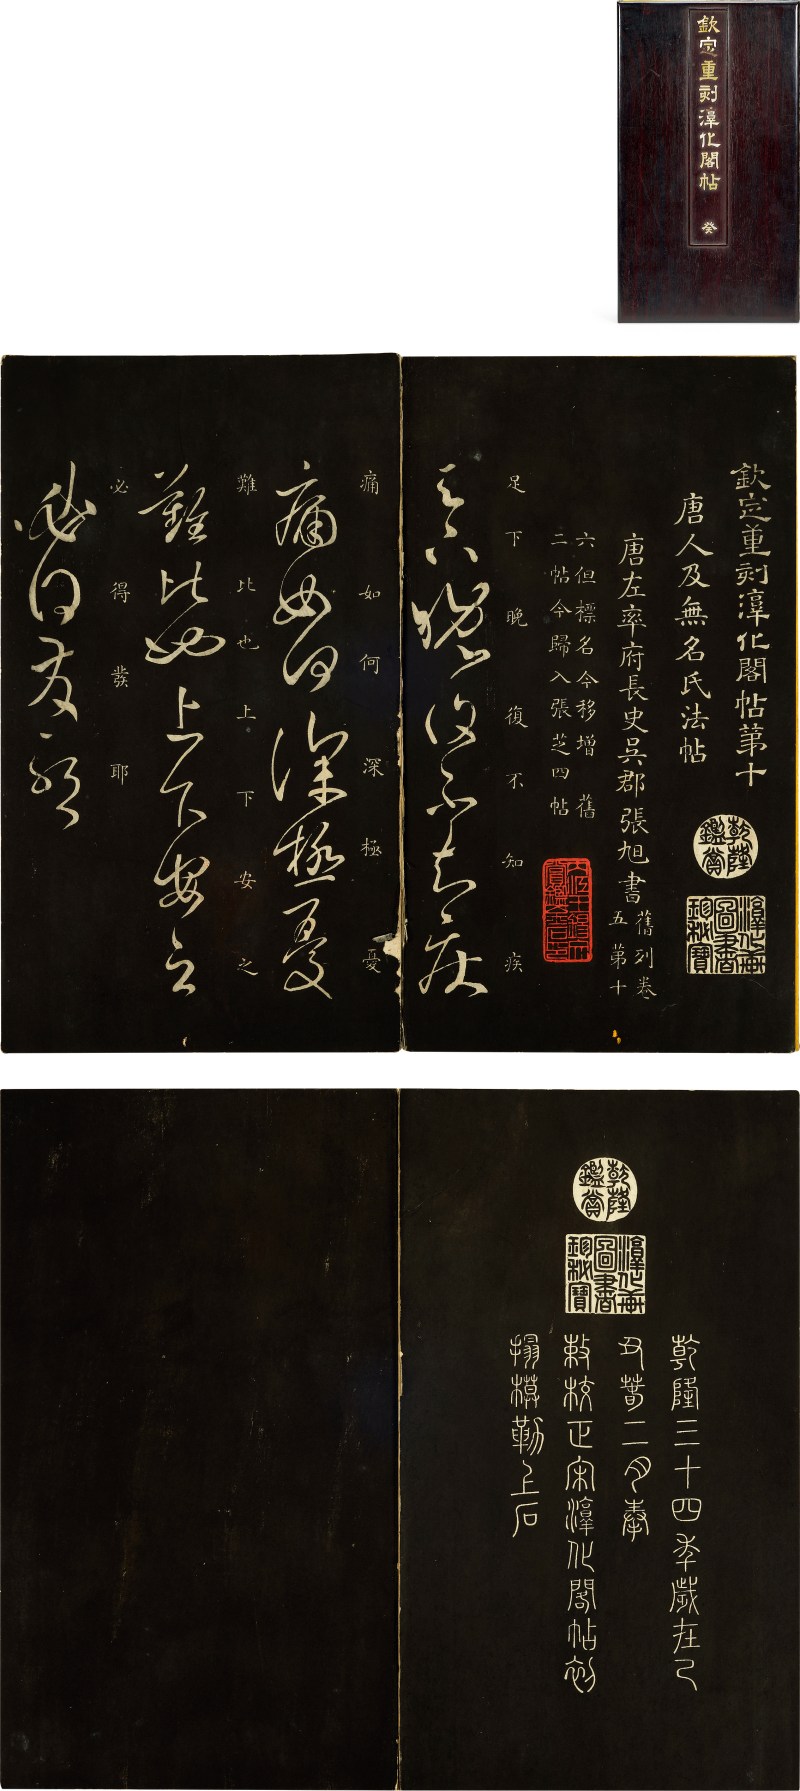 欽定重刻淳化閣帖
癸
欽定重刻淳化閣帖第十
乾隆鑑賞
淳化軒圖書珍秘寶
唐人及無名氏法帖
唐左率府長史吳郡張旭書
舊列卷五第十
六但標名今移增舊
二帖今歸入張芝四帖
足下晚復不知疾
足下晚復不知疾
痛如何深極憂
痛如何深極憂
難比也上下安之
難比也上下安之
必得發耶
必得發耶
乾隆鑑賞
淳化軒圖書珍秘寶
乾隆三十四年歲在己
丑春二月奉
敕校正宋淳化閣帖初
搨模勒上石